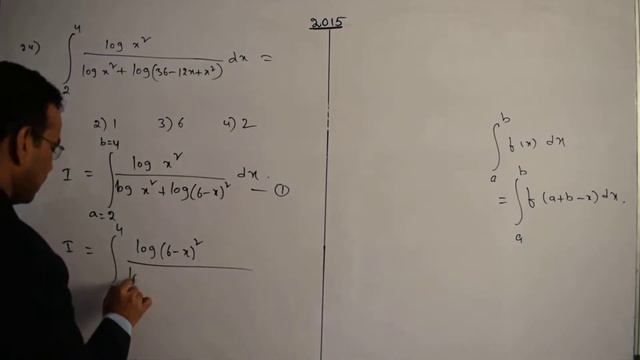 2015
24) ∫₂⁴ log x² / log x² + log(36-12x+x²) dx =
2) 1 3) 6 4) 2
I = ∫ₐ₌₂ᵇ⁼⁴ log x² / log x² + log(6-x)² dx. — ①
I = ∫⁴ log(6-x)² /
∫ₐᵇ f(x) dx
= ∫ₐᵇ f(a+b-x) dx.